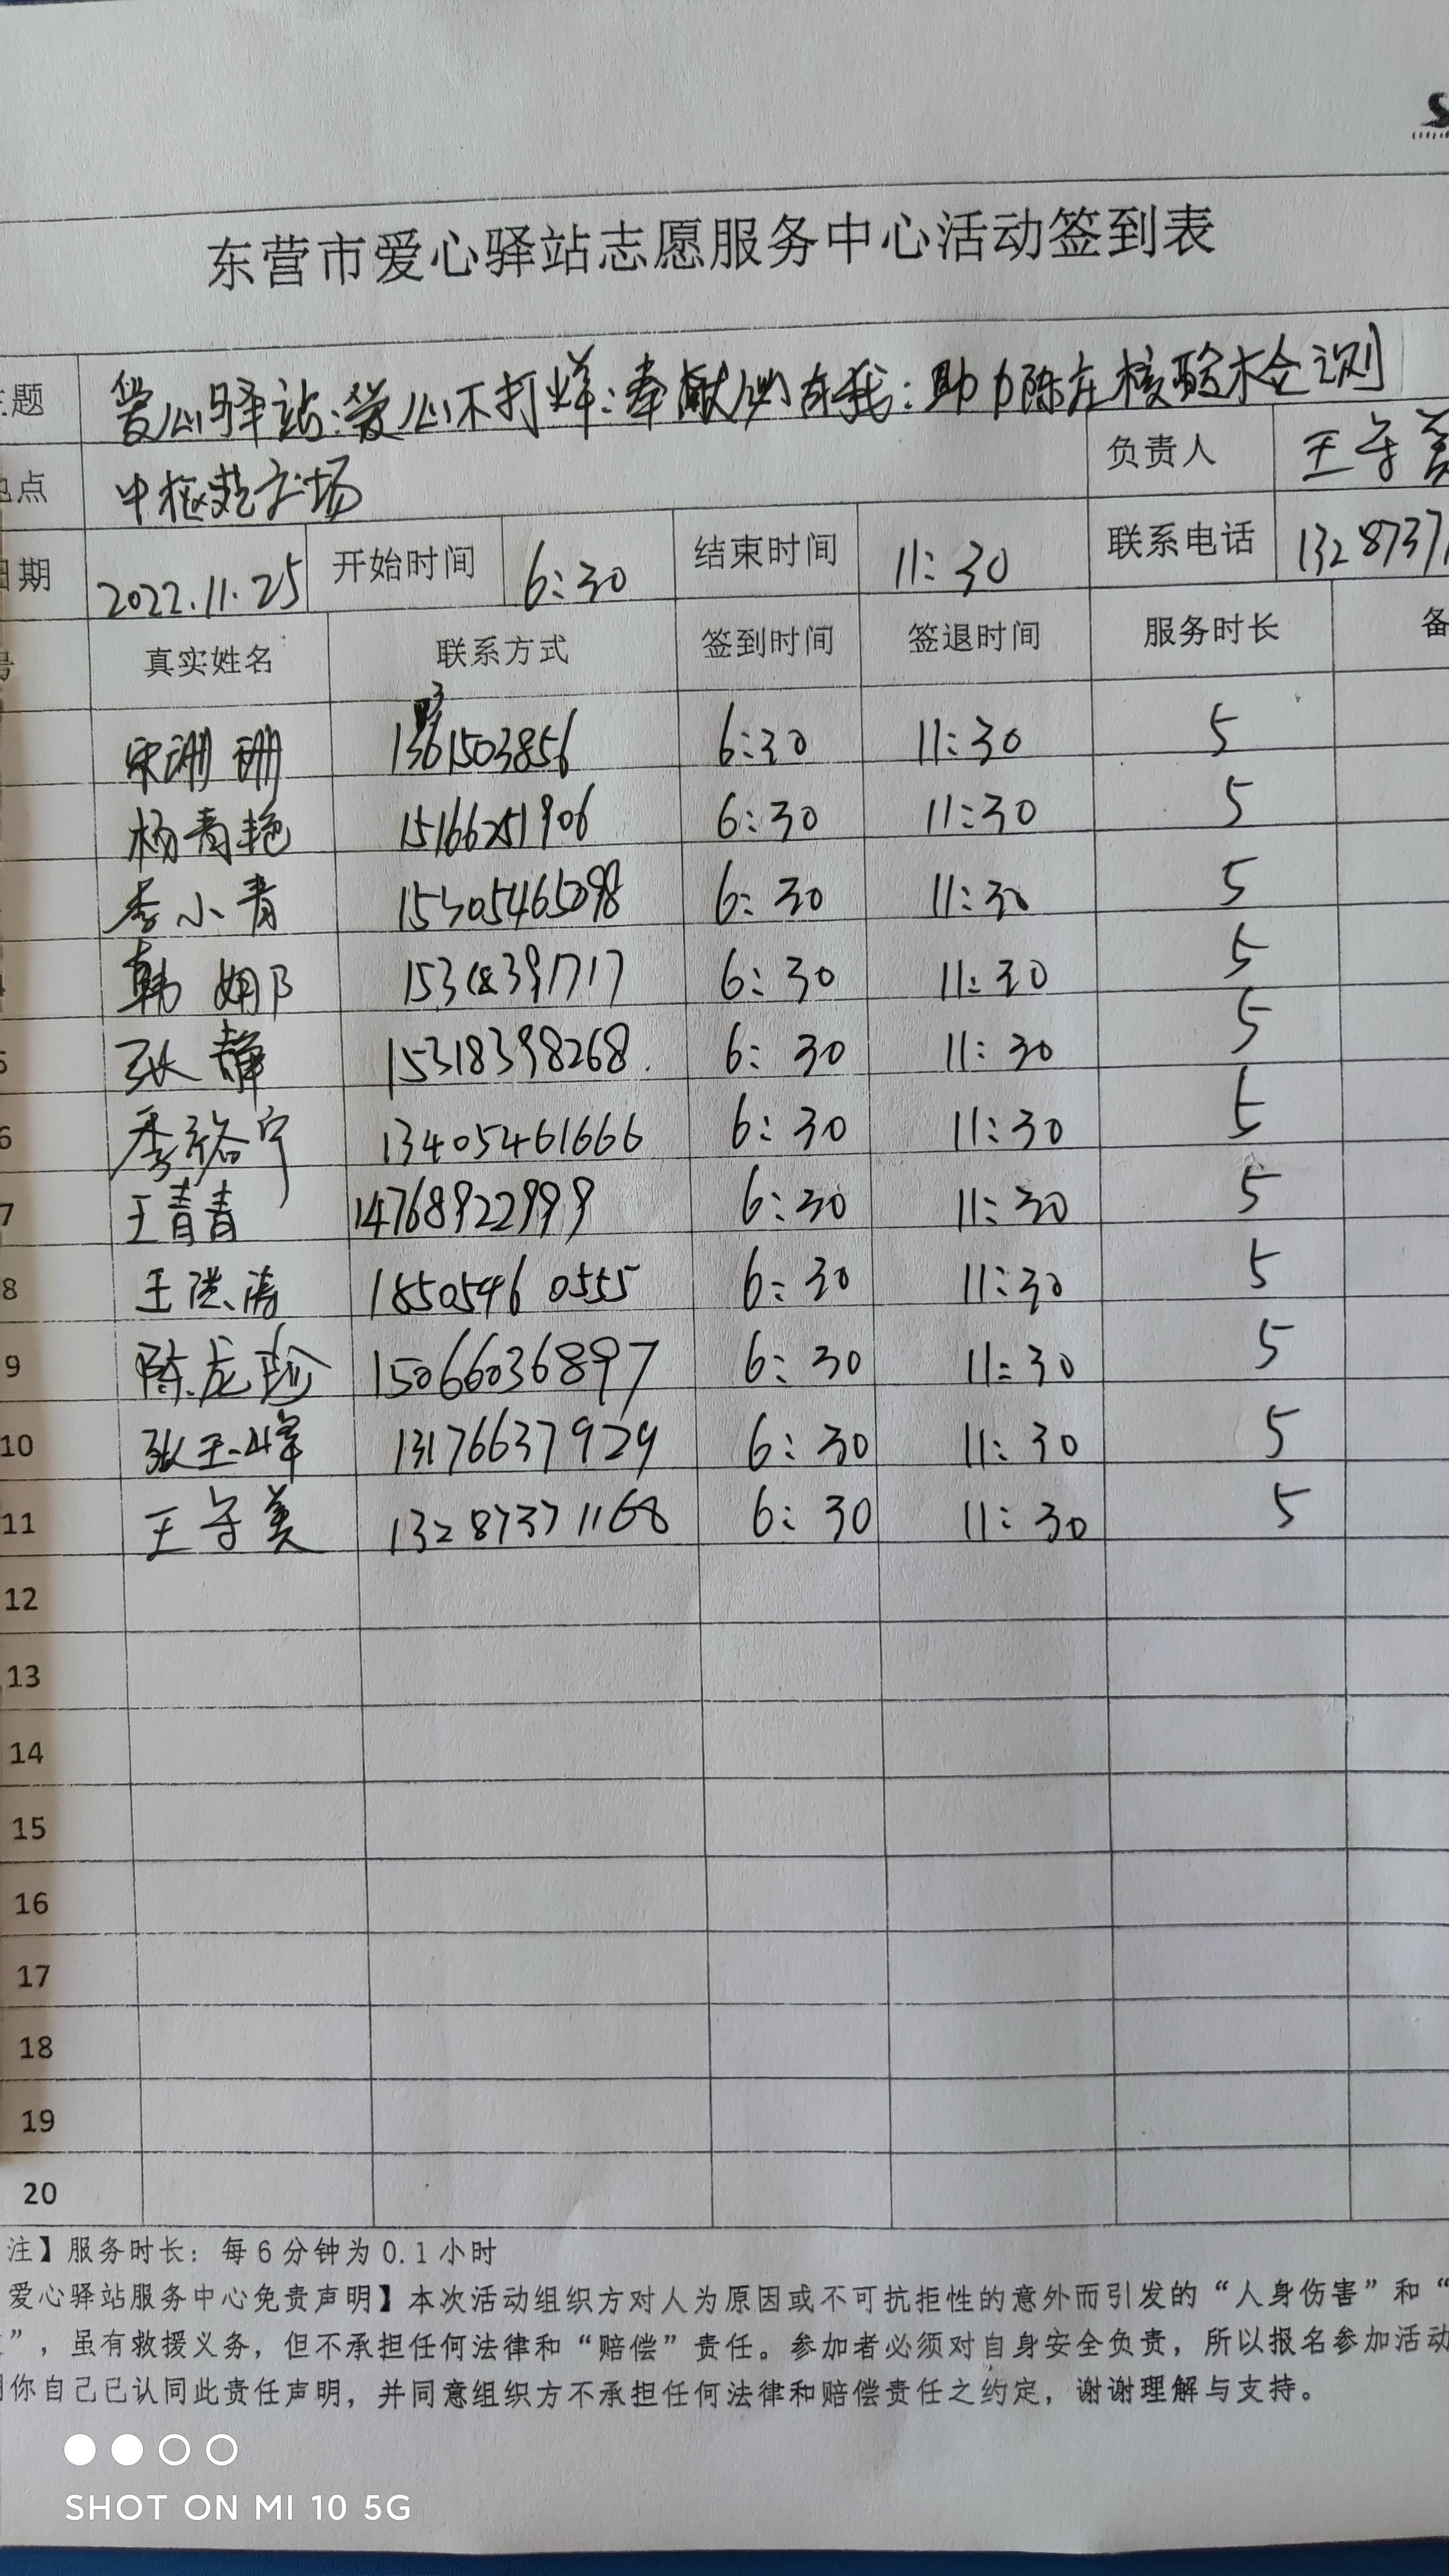 东营市爱心驿站志愿服务中心活动签到表
主题 爱心驿站:爱心不打烊:奉献必有我:助力陈庄核酸检测
地点 中枢苑广场 负责人 王守美
日期 2022.11.25 开始时间 6:30 结束时间 11:30 联系电话 1328737
号 真实姓名 联系方式 签到时间 签退时间 服务时长 备
宋珊珊 6:30 11:30 5
杨青艳 15166251906 6:30 11:30 5
李小青 15305465098 6:30 11:30 5
4 韩娜 15318391717 6:30 11:30 5
5 张静 15318398268. 6:30 11:30 5
6 季裕宁 13405461666 6:30 11:30 5
7 王青青 14768922999 6:30 11:30 5
8 王洪涛 18505460555 6:30 11:30 5
9 陈龙珍 15066036897 6:30 11:30 5
10 张玉峰 13176637929 6:30 11:30 5
11 王守美 13287371168 6:30 11:30 5
12
13
14
15
16
17
18
19
20
注】服务时长：每6分钟为0.1小时
爱心驿站服务中心免责声明】本次活动组织方对人为原因或不可抗拒性的意外而引发的“人身伤害”和“
”，虽有救援义务，但不承担任何法律和“赔偿”责任。参加者必须对自身安全负责，所以报名参加活动
你自己已认同此责任声明，并同意组织方不承担任何法律和赔偿责任之约定，谢谢理解与支持。
SHOT ON MI 10 5G